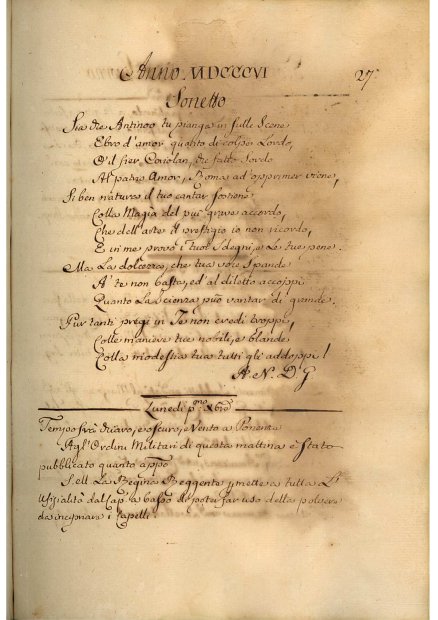 Anno. MDCCCVI 27
Sonetto
Sia che Antinoo tu pianga in sulle Scene
Ebro d'amor quanto di colpe Lordo,
O'l fier Coriolan, che fatto Sordo
Al patrio Amor, Roma ad opprimer viene,
Si ben natura il tuo cantar sostiene
Colla Magia del più grave accordo,
Che dell'arte il prestigio io non ricordo,
E in me provo i tuoi Sdegni, e Le tue pene.
Ma La dolcezza, che tua voce Spande
A' te non basta, ed al diletto accoppi
Quanto La Scienza può vantar di grande.
Pur tanti pregi in Te non credi troppi,
Colle maniere tue nobili, e blande
Colla modestia tua tutti gli addoppi!
A. N. D. G.
Lunedì p.mo Xbre
Tempo e oscuro, e Vento a Ponente
Agl'Ordini Militari di questa mattina è Stato
pubblicato quanto app.o
S. e La Regina Reggente permette a tutta L'
Uffizialità dal Cap. a basso di poter far uso della polvere
da incipriare i Capelli.